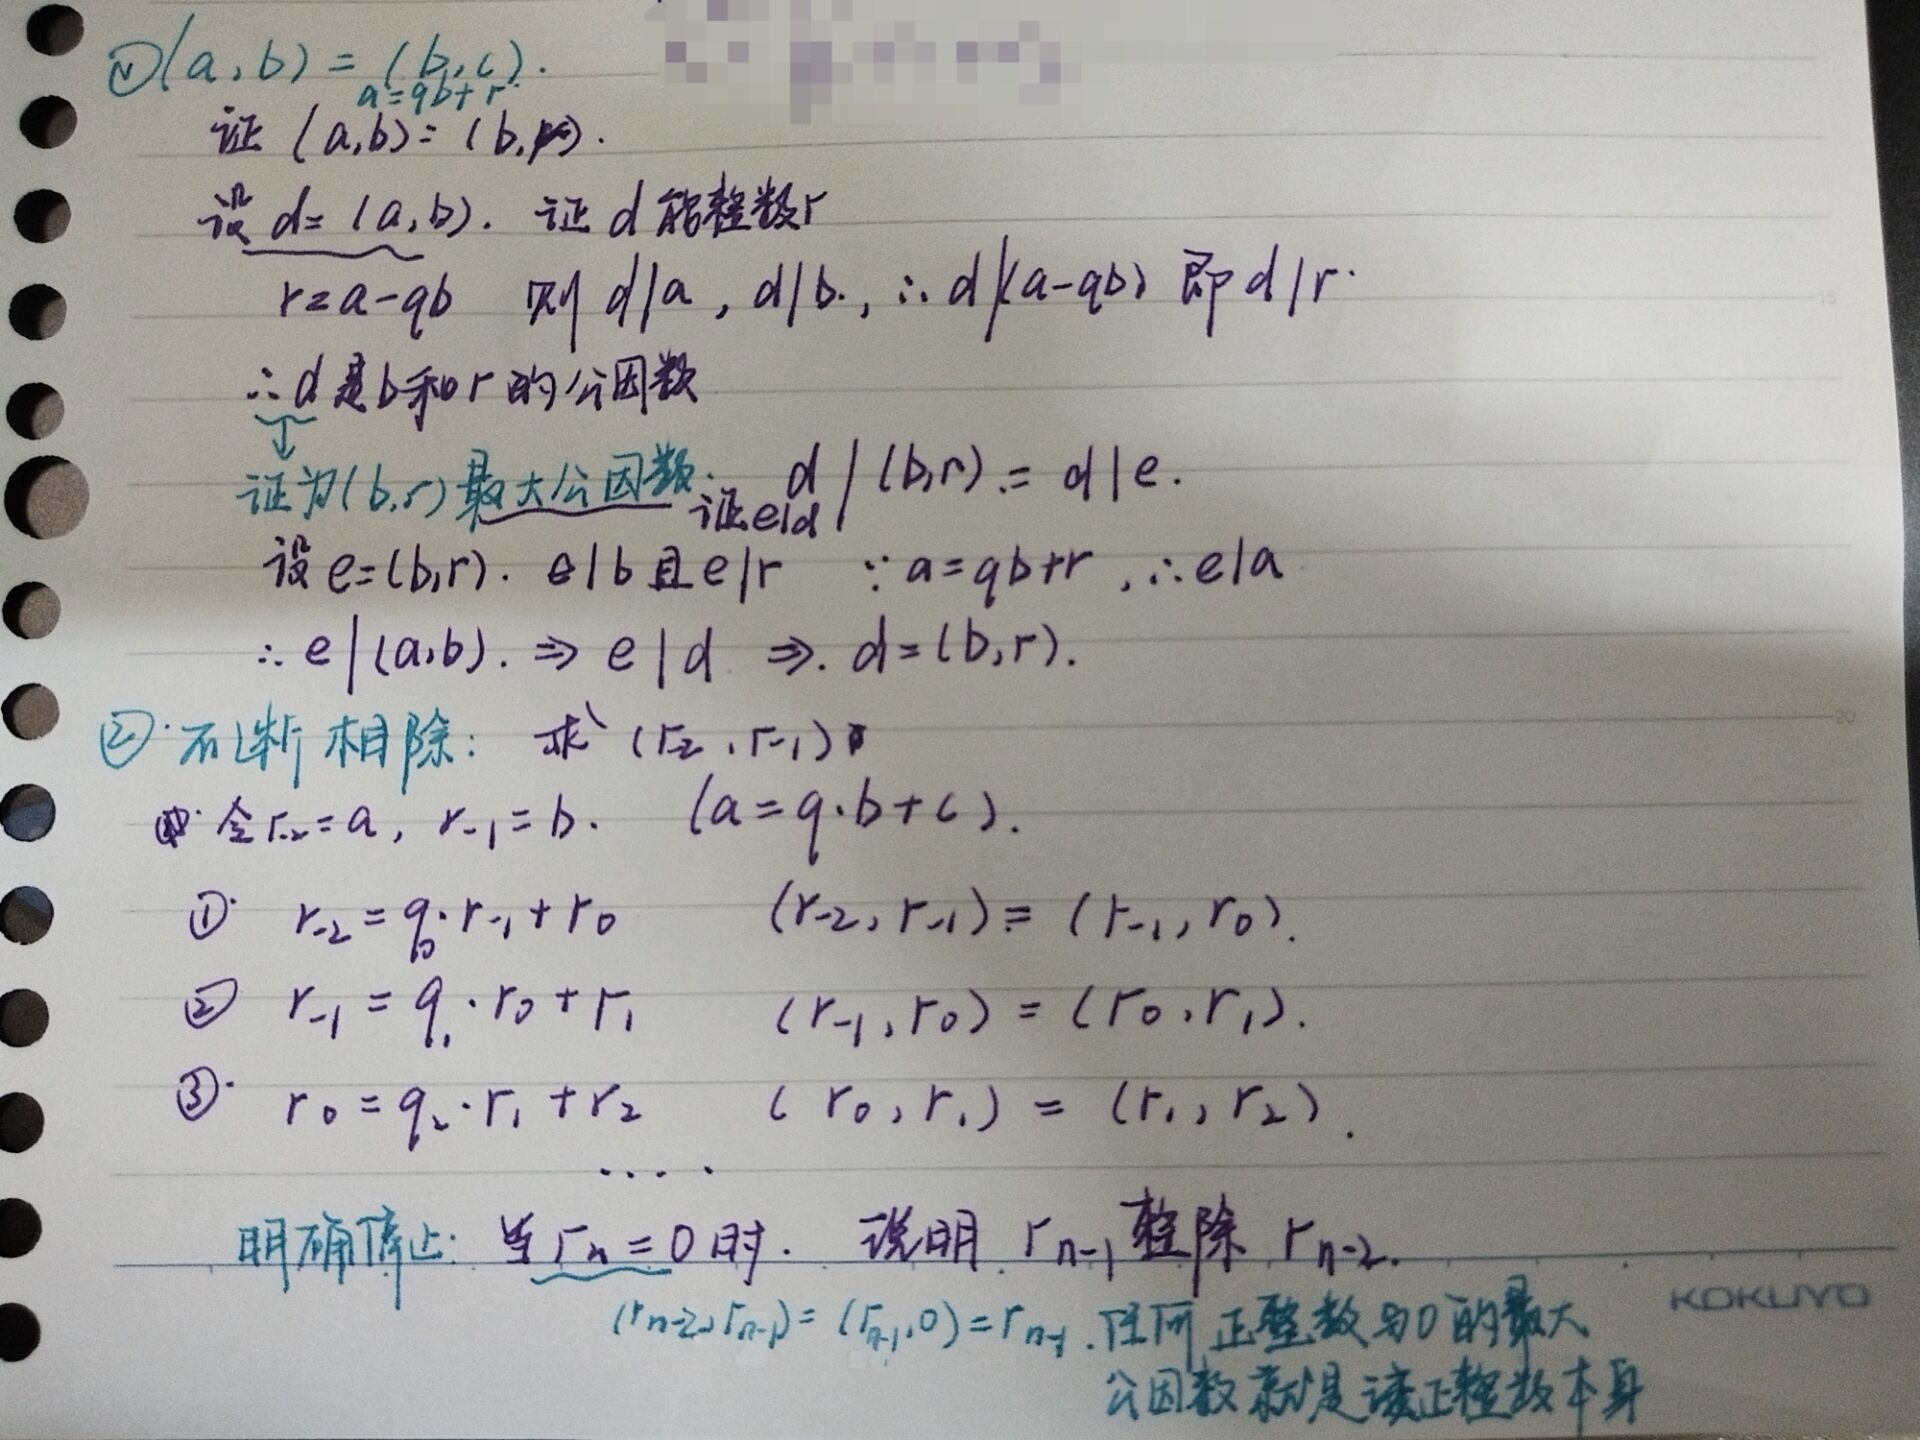 (a,b) = (b,c).
a=qb+r
证 (a,b)=(b,r).
设 d=(a,b). 证 d 能整数r
r=a-qb 则 d|a , d|b. , ∴d|(a-qb) 即 d|r.
∴d 是 b和r 的公因数
证为(b,r)最大公因数. d | (b,r) = d|e.
证e|d
设 e=(b,r). e|b 且 e|r ∵a=qb+r , ∴e|a
∴e|(a,b). ⇒ e|d ⇒. d=(b,r).
② 不断相除: 求 (r-2 , r-1)
令 r-2=a, r-1=b. (a=q·b+c).
① r-2 = q0·r-1+r0 (r-2, r-1) = (r-1, r0).
② r-1 = q1·r0+r1 (r-1, r0) = (r0, r1).
③ r0 = q2·r1+r2 (r0, r1) = (r1, r2).
....
明确停止: 当 rn=0 时. 说明 rn-1 整除 rn-2.
(rn-2, rn-1) = (rn-1, 0) = rn-1. 任何正整数与0的最大
KOKUYO
公因数就是该正整数本身